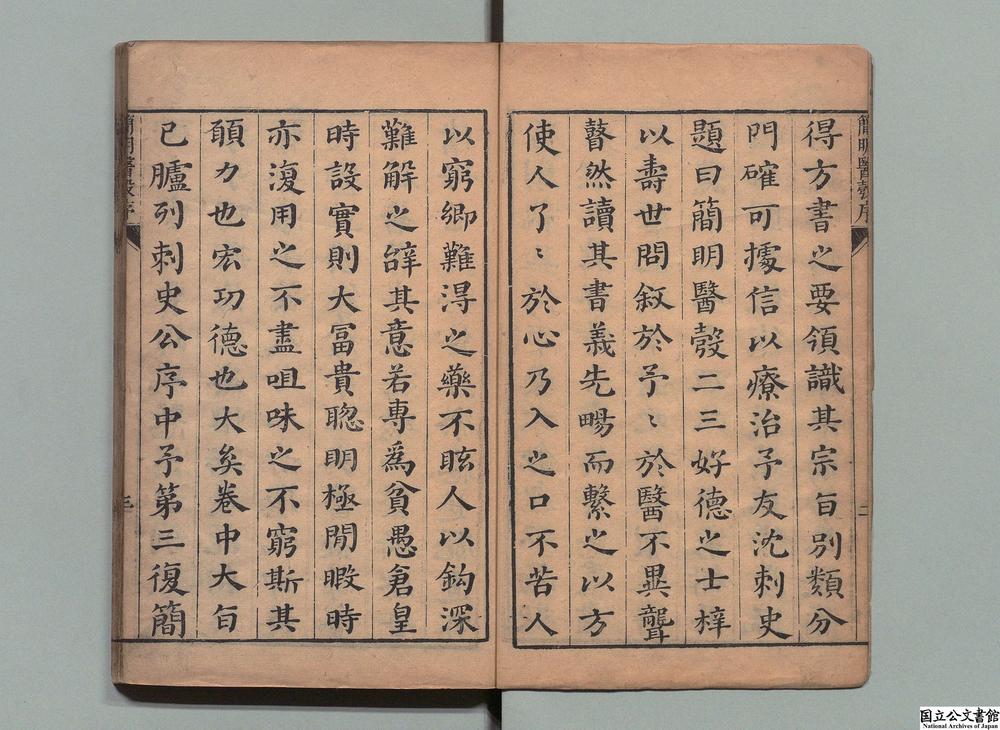 簡明醫彀序
二
得方書之要領識其宗旨別類分
門確可據信以療治予友沈刺史
題曰簡明醫彀二三好德之士梓
以壽世問敘於予〻於醫不異聾
瞽然讀其書義先暢而繫之以方
使人了〻於心乃入之口不苦人
以窮鄉難淂之藥不眩人以鈎深
難解之辭其意若專爲貧愚倉皇
時設實則大冨貴聦明極閒暇時
亦復用之不盡咀味之不窮斯其
願力也宏功德也大矣卷中大旨
已臚列刺史公序中予第三復簡
簡明醫彀序
三
国立公文書館
National Archives of Japan